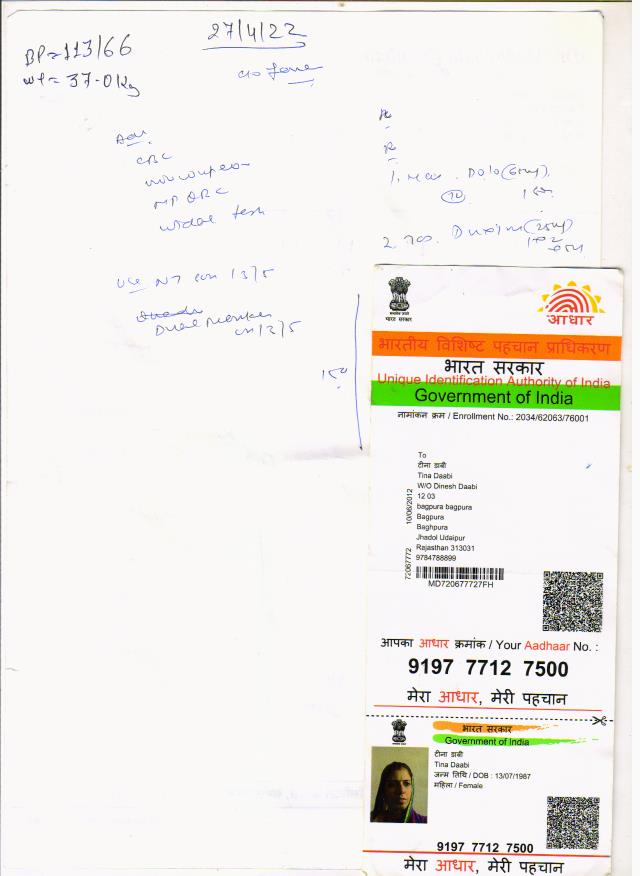 27/4/22
BP=113/66
wt= 37.0 kg
c/o
Adv
CBC
MP QBC
widal test
R
1.
Dolo (650mg)
10
2.
USG
on 13/5
Dual Marker
on 13/5
सत्यमेव जयते
भारत सरकार
आधार
भारतीय विशिष्ट पहचान प्राधिकरण
भारत सरकार
Unique Identification Authority of India
Government of India
नामांकन क्रम / Enrollment No.: 2034/62063/76001
To
टीना डाबी
Tina Daabi
W/O Dinesh Daabi
12 03
bagpura bagpura
Bagpura
Baghpura
Jhadol Udaipur
Rajasthan 313031
9784788899
72067772 10/06/2012
MD720677727FH
आपका आधार क्रमांक / Your Aadhaar No. :
9197 7712 7500
मेरा आधार, मेरी पहचान
भारत सरकार
Government of India
टीना डाबी
Tina Daabi
जन्म तिथि / DOB : 13/07/1987
महिला / Female
9197 7712 7500
मेरा आधार, मेरी पहचान